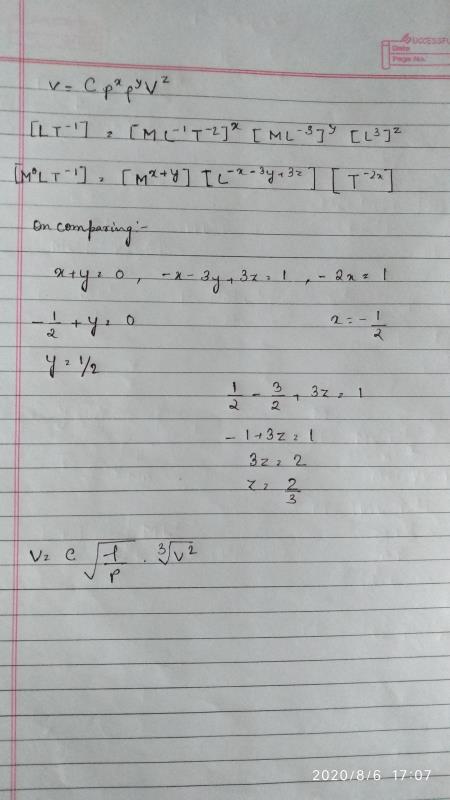 SUCCESSFU
Date
Page No.
v = C p^x ρ^y V^z
[LT^-1] = [ML^-1T^-2]^x [ML^-3]^y [L^3]^z
[M^0LT^-1] = [M^x+y] [L^-x-3y+3z] [T^-2x]
On comparing:-
x+y = 0, -x-3y+3z = 1, -2x = 1
-1/2 + y = 0 x = -1/2
y = 1/2
1/2 - 3/2 + 3z = 1
-1+3z = 1
3z = 2
z = 2/3
V = C √(f/p) . ∛V^2
2020/8/6 17:07